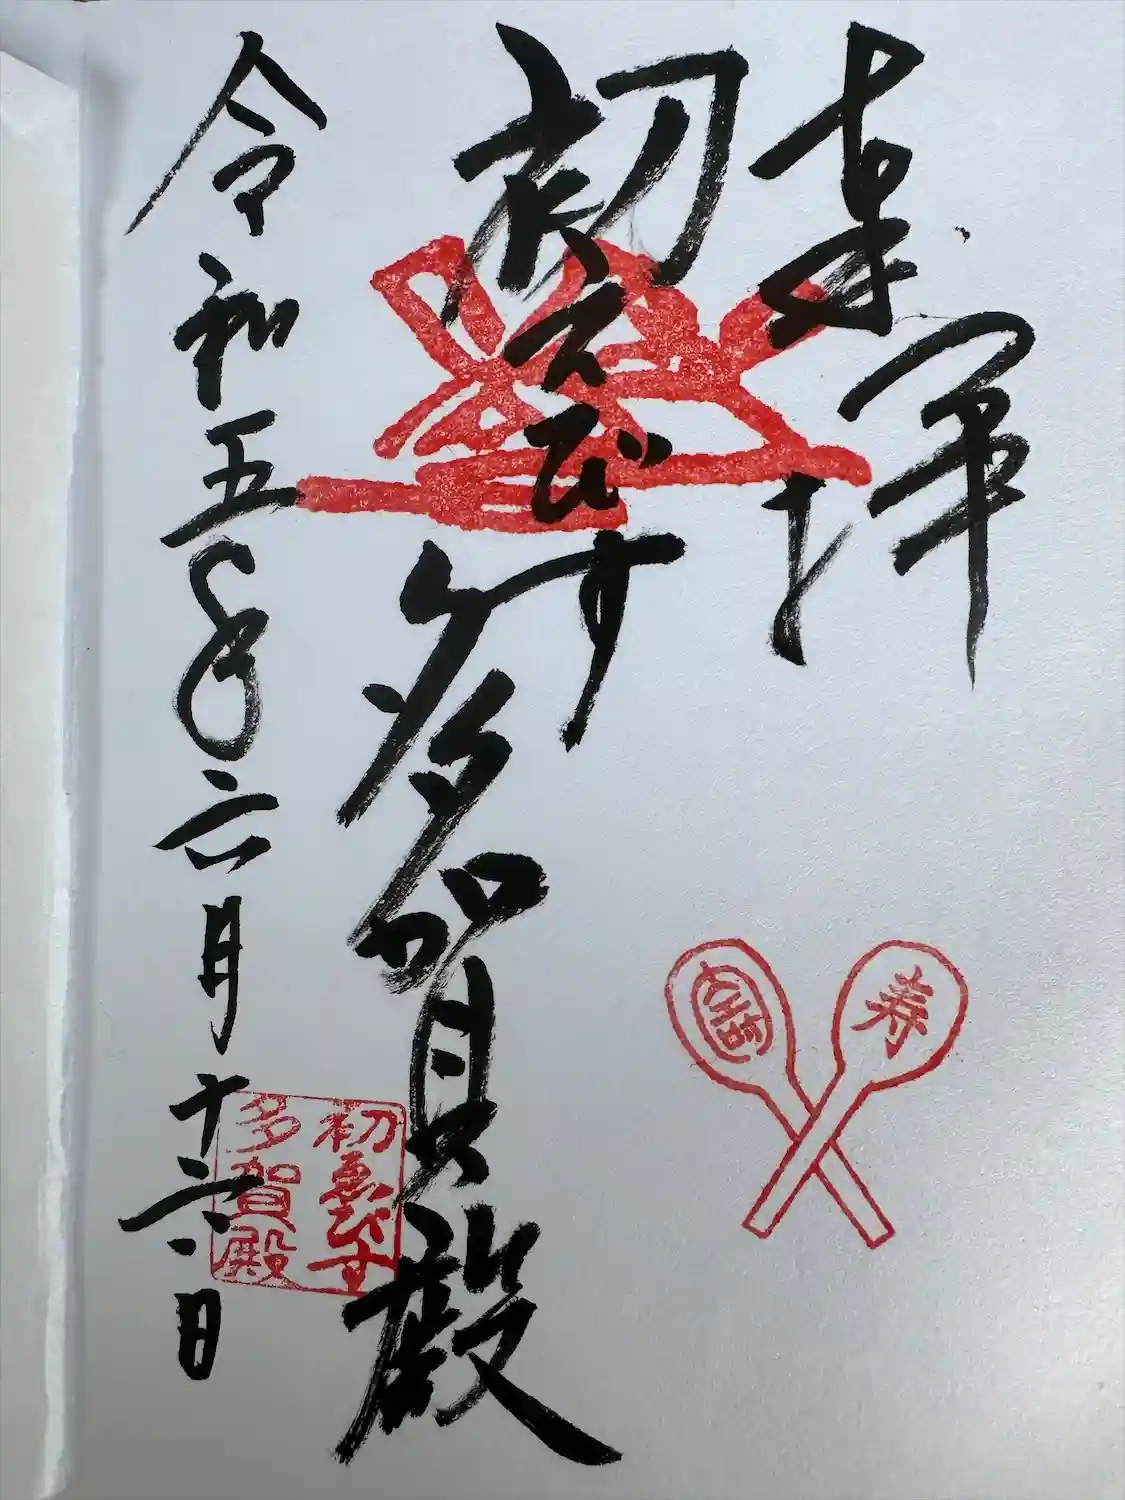 奉拝
初えびす
多賀殿
令和五年六月十六日
寿
初ゑびす
多賀殿